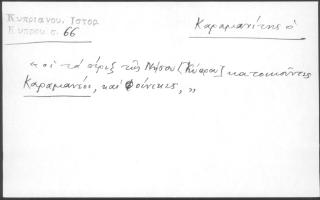 Κυπριανου, Ιστορ.
Κυπρου σ. 66
Καραμανίτης ὁ
« οἱ τὰ πέριξ τῆς Νήσου [Κύπρου] κατοικοῦντες
Καραμανίται, καὶ Φοίνικες, »